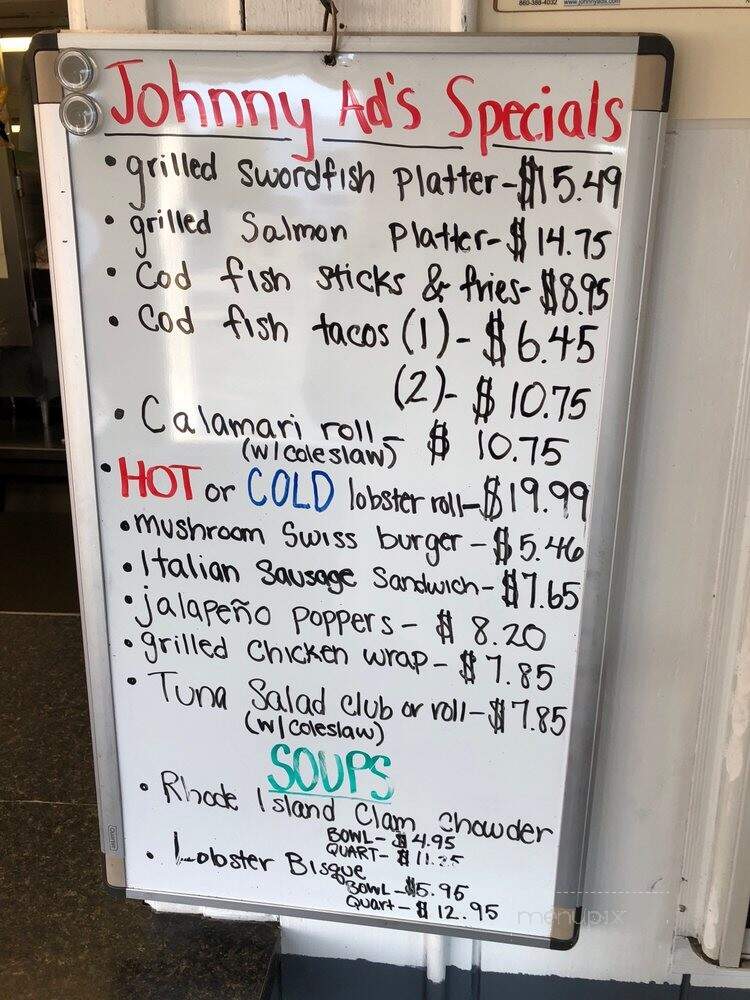 860-388-4032 www.johnnyads.com
Johnny Ad's Specials
• grilled swordfish platter - $15.49
• grilled Salmon platter - $14.75
• Cod fish sticks & fries - $8.95
• Cod fish tacos (1) - $6.45
(2) - $10.75
• Calamari roll - $10.75
(w/coleslaw)
• HOT or COLD lobster roll - $19.99
• mushroom Swiss burger - $5.46
• Italian Sausage Sandwich - $7.65
• jalapeño poppers - $8.20
• grilled chicken wrap - $7.85
• Tuna Salad club or roll - $7.85
(w/coleslaw)
SOUPS
• Rhode Island Clam Chowder
BOWL - $4.95
QUART - $11.25
• Lobster Bisque
BOWL - $5.95
Quart - $12.95
menupix